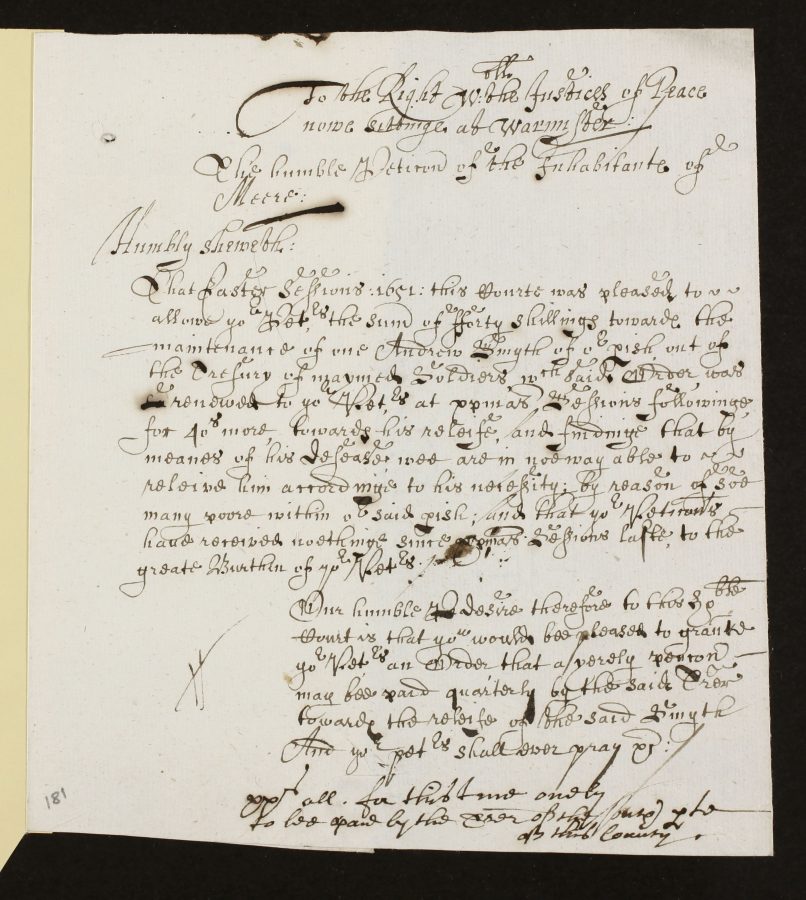 To the Right W:bll the Justices of Peace
nowe sittinge at Warmister:
The humble Peticon of the Inhabitants of
Meere:
Humbly sheweth:
That Easter Sessions :1651: this Courte was pleased to
allowe yor Petrs the sum of fforty shillings towards the
maintenance of one Andrew Smyth of or pish out of
the Tresury of maymed Soldiers wch said Order was
renewed to yor Petrs at xpmas Sessions followinge
for 40s more towards his releife, and findinge that by
meanes of his desease wee are in noe way able to
releive him accordinge to his necessity; by reason of soe
many poore within or said pish; And that yor Peticonrs
have received noethinge since xpmas Sessions laste, to the
greate Burthen of yor Petrs:
Our humble desire therefore to this Ho:ble
Court is that you would bee pleased to graunte
yor Petrs an Order that a yerely pencon
may bee paid quarterly by the said Trer
towards the releife of the said Smyth
And yor petrs shall ever pray &c:
xxs all. for this time onely
to bee paid by the Trer of the South pte
of this County.
181